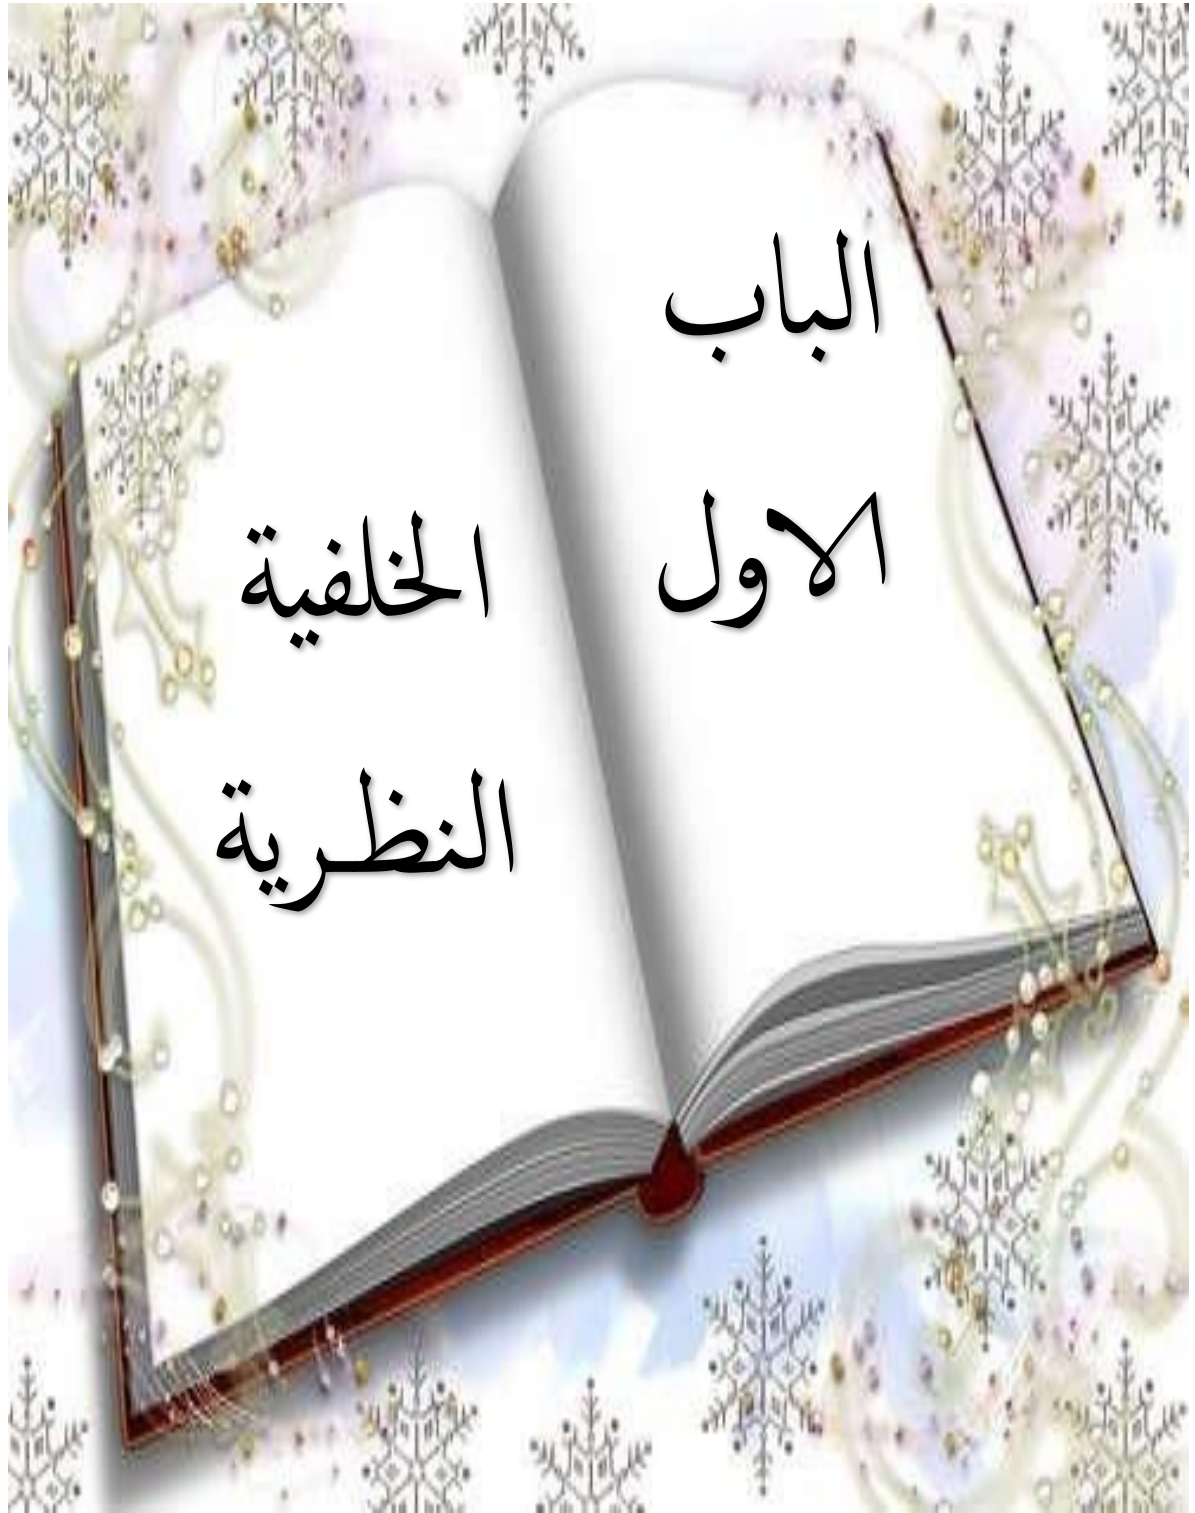 الباب
الاول
الخلفية
النظرية